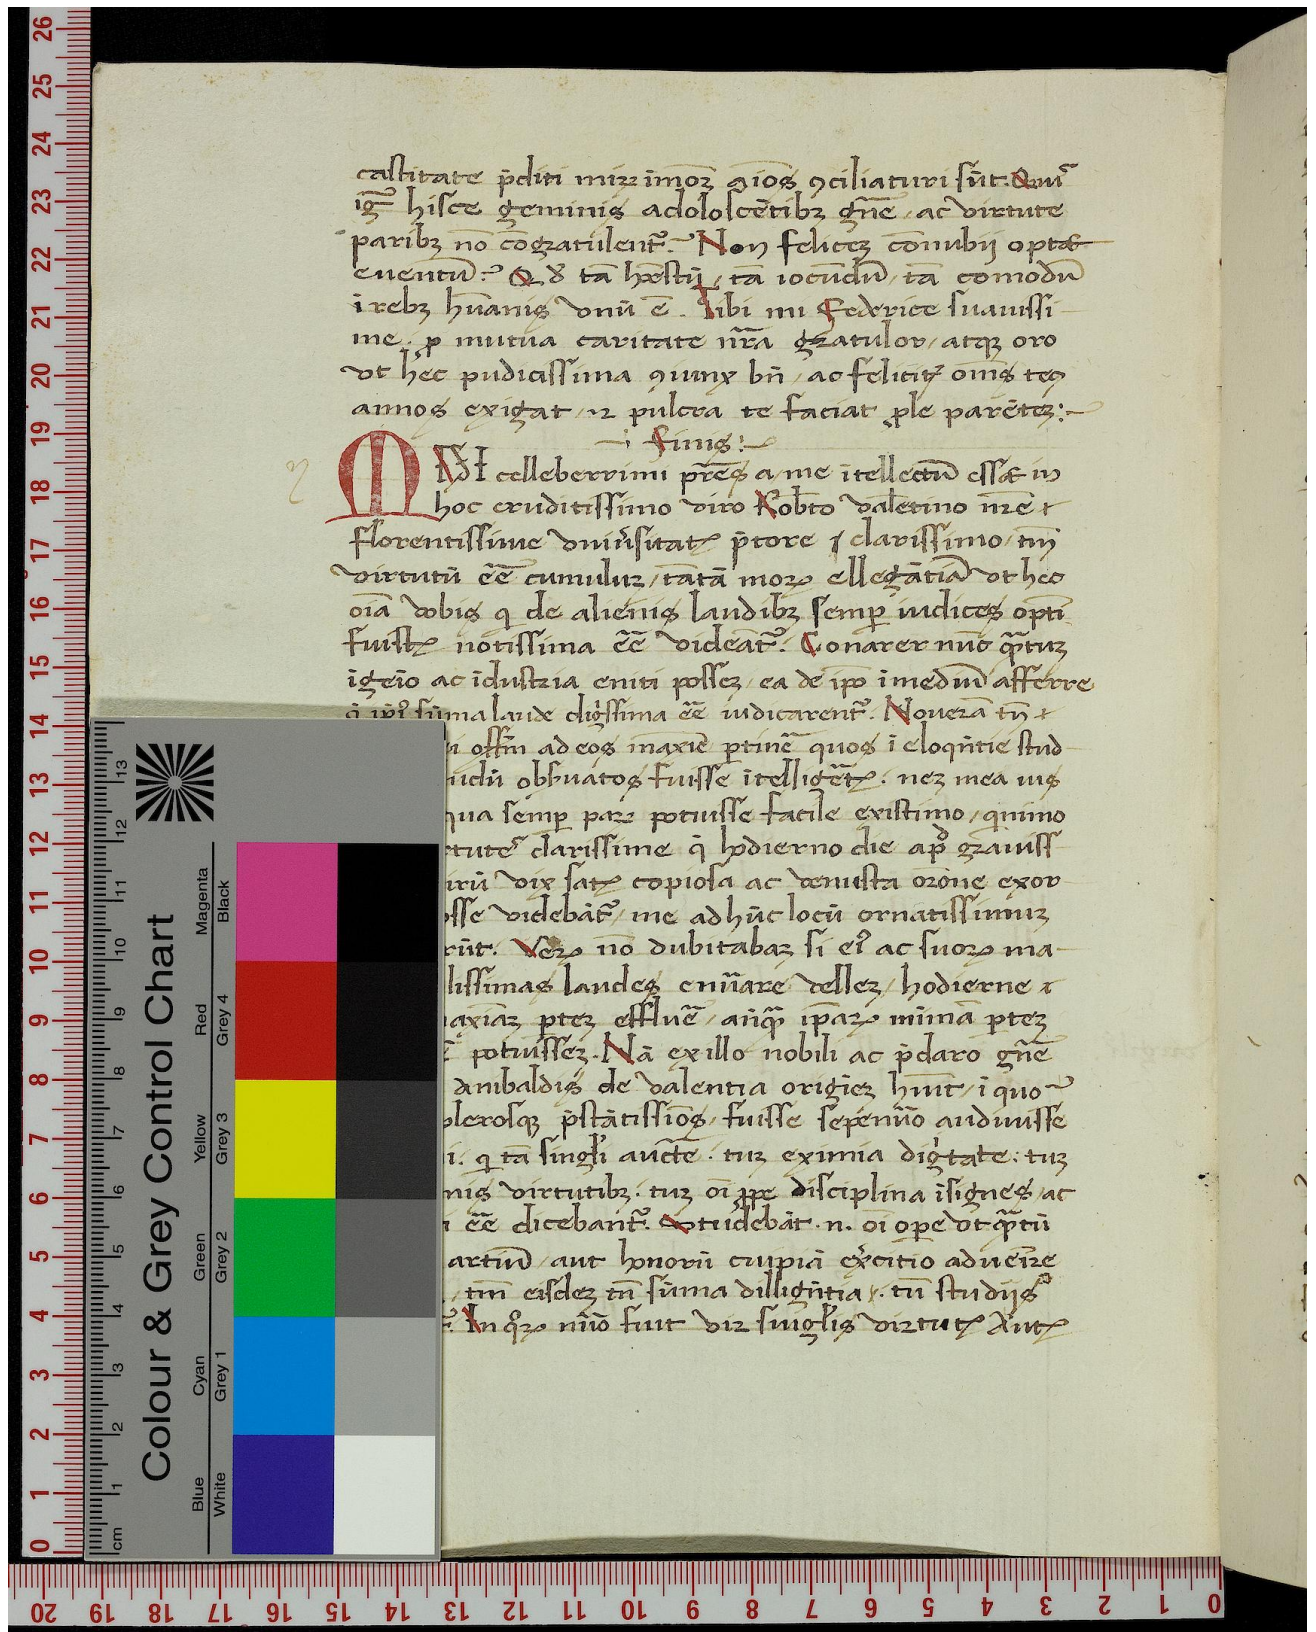 castitate p̄diti miꝝ īmoꝝ aīos ꝯciliaturi sūt. Qui᷑
igr̄ hisce geminis adoloscētibꝫ gn̄e, ac virtute
paribꝫ nō cōgratulent᷑. Non felicez cōnubij optat
eventū? Qd̓ tā hōestū, tā iocūdū, tā comodū
ī rebꝫ hūanis vnū ē. Tibi mi Federice suavissi-
me. ꝓ mutua caritate nr̄a gratulor, atqꝫ oro
vt hec pudicissima ꝯiunx bn̄, ac felicit᷑ om̄s teꝯ
annos exigat, ⁊ pulcra te faciat ꝓle parētez:
Finis:
MSI celleberrimi pr̄es a me ītellectū essꝫ in
hoc eruditissimo viro Robto valētino nr̄e
florentissime vniūsitatꝭ p̄tore clarissimo, tm̄
virtutū ēē cumuluz, tātā moꝝ ellegātiā vt hec
oīa vobis q de alienis laudibꝫ semꝑ iudices optī
fuistꝭ notissima ēē videāt᷑. Conarer nūc qᷓtuz
īgēio ac īdustria eniti possez, ea de ip̄o ī mediū afferre
sūma laude dig̓ssima ēē iudicarent᷑. Noverā tn̄
offm̄ ad eos maxīe ꝑtinē quos ī eloqn̄tie stud-
obs̓uātos fuisse ītelligētꝭ. neꝫ mea iūs
qua semꝑ paꝝ potuisse facile existimo, qnimo
clarissime q̓ hodierno die apd̓ graviss-
vix satꝭ copiosa ac venusta orōne exor-
videbāt᷑, me ad hūc locū ornatissimuz
Veꝝ nō dubitabaz si ei᷑ ac suoꝝ ma-
laudes enūare vellez, hodierne
ꝑtez effluē, anqᷓ ip̄aꝝ mīmā ꝑtez
potuissez. Nā ex illo nobili ac p̄claro gn̄e
anibaldis de valentia origiez hn̄it, ī quo
plerosqꝫ p̄stātissīos, fuisse sepēnūo audivisse
q tā singl̓i aucte. tuz eximia dig̓tate: tuz
virtutibꝫ. tuz oī ꝓpe disciplina īsignes, ac
ēē dicebant᷑. studebāt. n. oī ope vt qᷓtū
artiū, aut honorū cuipiā ex̓citio adveīre
tm̄ eisdez tn̄ sūma dillign̄tia, tū studijs
In qoꝝ nūo fuit vir singl̓is virtutꝭ Antꝭ
Colour & Grey Control Chart
Magenta
Black
Red
Grey 4
Yellow
Grey 3
Green
Grey 2
Cyan
Grey 1
Blue
White
cm
1
2
3
4
5
6
7
8
9
10
11
12
13
26
25
24
23
22
21
20
19
18
17
16
15
14
13
12
11
10
9
8
7
6
5
4
3
2
1
0
20 19 18 17 16 15 14 13 12 11 10 9 8 7 6 5 4 3 2 1 0